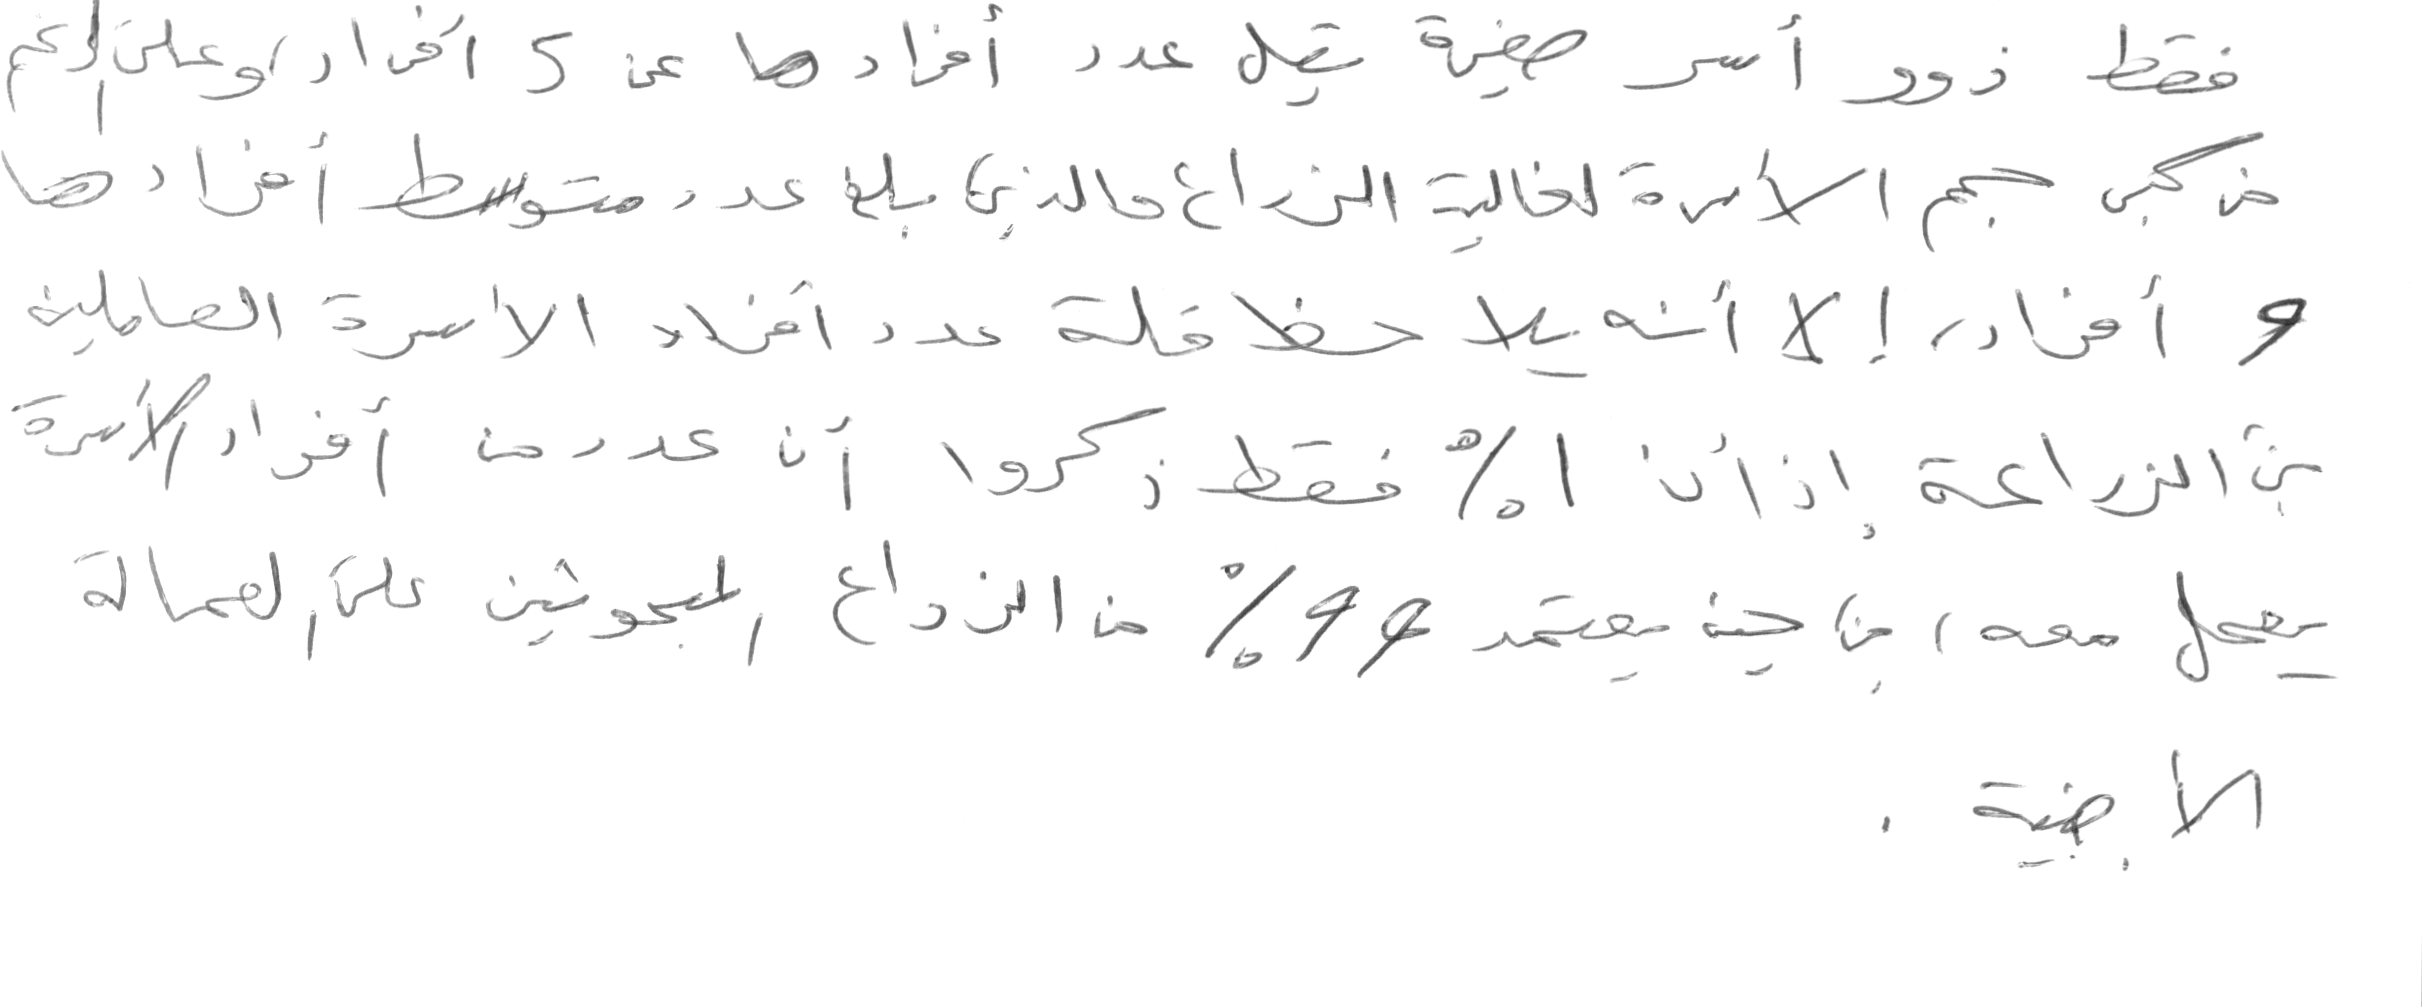 فقط ذوو أسر صغيرة يقل عدد أفرادها عن 5 أفراد، وعلى الرغم
من كبر حجم الأسرة لغالبية الزراع والذي بلغ عدد متوسط أفرادها
9 أفراد، إلا أنه يلاحظ قلة عدد أفراد الأسرة العاملين
في الزراعة إذ أن 1% فقط ذكروا أن عدد من أفراد الأسرة
يعمل معه، في حين يعتمد 99% من الزراع المبحوثين على العمالة
الأجنبية .